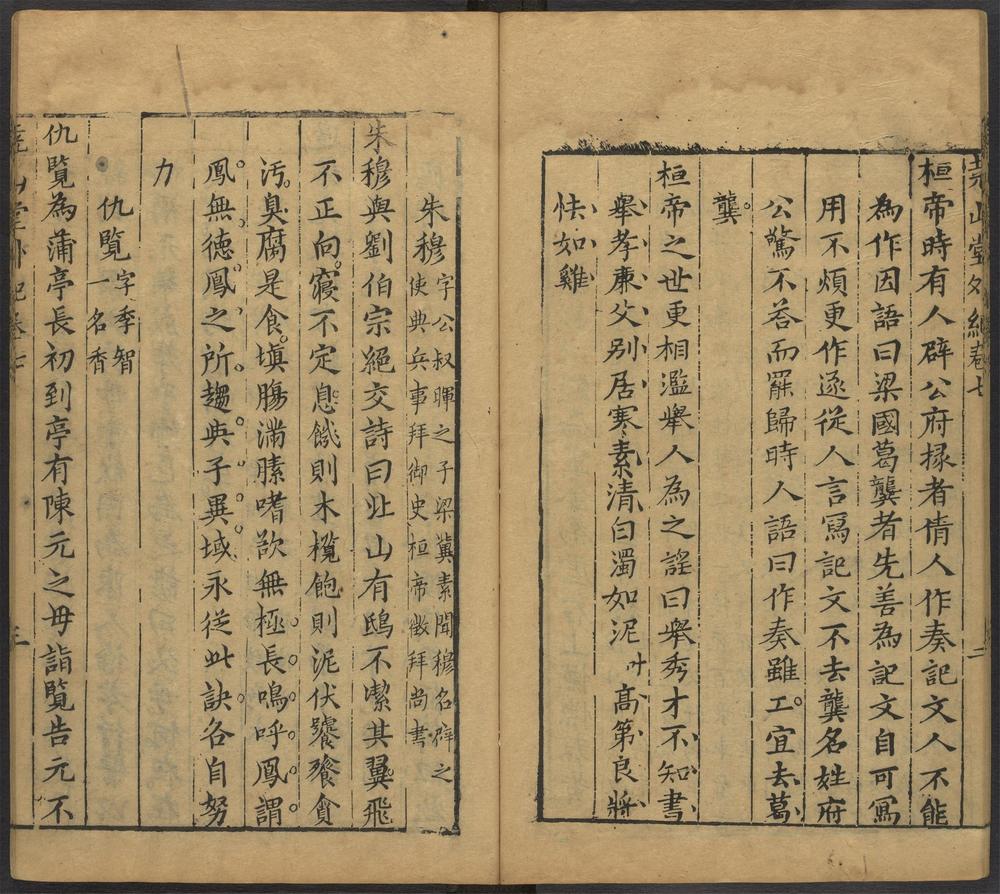 堯山堂外紀卷七 二
桓帝時有人辟公府掾者倩人作奏記文人不能
為作因語曰梁國葛龔者先善為記文自可寫
用不煩更作遂從人言寫記文不去龔名姓府
公驚不荅而罷歸時人語曰作奏雖工宜去葛
龔
桓帝之世更相濫舉人為之謡曰舉秀才不知書
舉孝廉父别居寒素清白濁如泥叶高第良將
怯如雞
朱穆字公叔暉之子梁冀素聞穆名辟之
使典兵事拜御史桓帝徵拜尚書
朱穆與劉伯宗絕交詩曰北山有鴟不潔其翼飛
不正向寢不定息饑則木欖飽則泥伏饕餮貪
汚臭腐是食塡腸滿膆嗜欲無極長鳴呼鳳謂
鳳無德鳳之所趨與子異域永從此訣各自努
力
仇覽字季智
一名香
仇覽為蒲亭長初到亭有陳元之母詣覽告元不
堯山堂外紀卷七 三